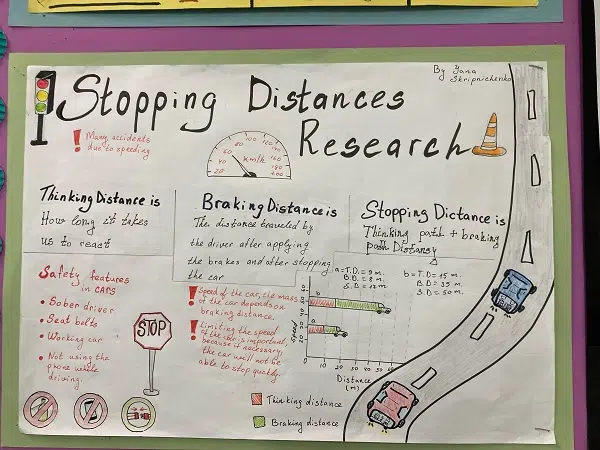 By Yana
Skripnichenko
Stopping Distances
Research
! Many accidents
due to speeding
20 40 60 80 100 120 140 160 180 200
km/h
Thinking Distance is
How long it takes
us to react
Braking Distance is
The distance traveled by
the driver after applying
the brakes and after stopping
the car
Stopping Dictance is
Thinking path + braking
path Distansy
Safety features
in cars
• Sober driver
• Seat belts
• Working car
• Not using the
phone while
driving.
STOP
! Speed of the car, the mass
of the car depends on
braking distance.
! Limiting the speed
of the car is important,
because if necessary,
the car will not be
able to stop quickly.
a = T.D. = 9 m.
S.D = 12 m
b = T.D = 15 m.
B.D = 35 m.
S.D = 50 m.
b
a
Speed
0 10 20 30 40 50
Distance
(m)
Thinking distance
Braking distance